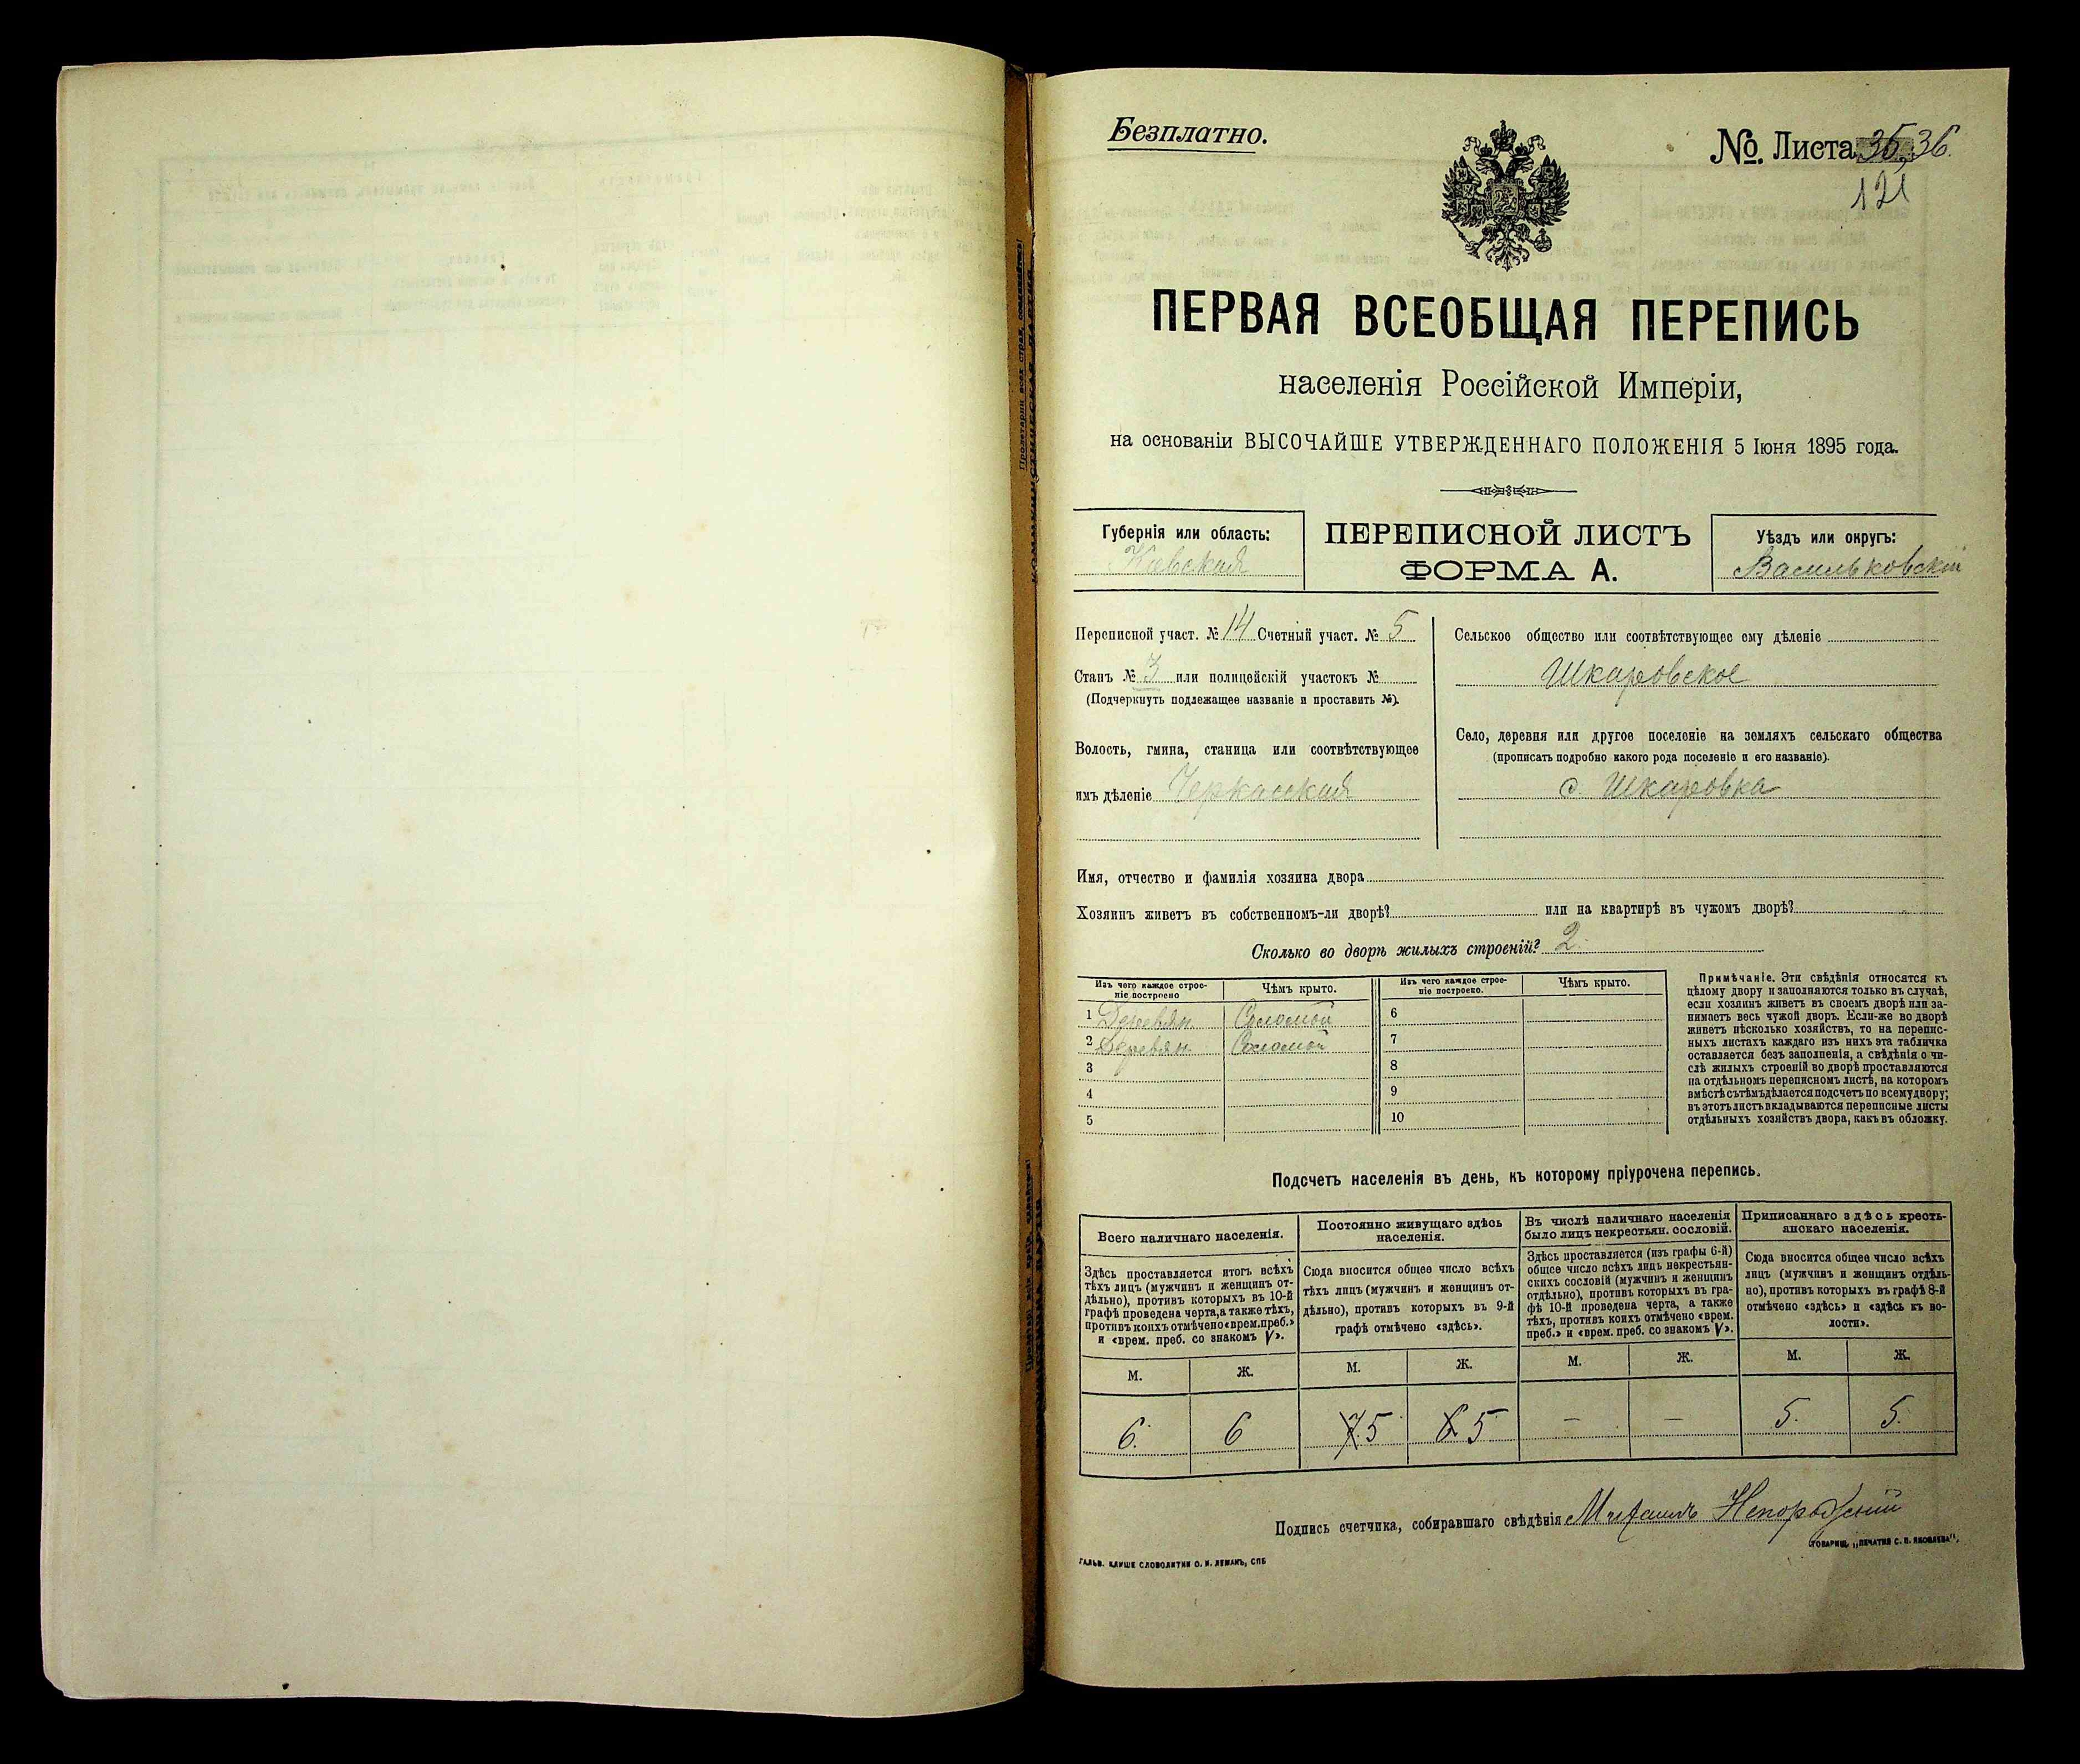 Безплатно.
№. Листа 35, 36.
121
ПЕРВАЯ ВСЕОБЩАЯ ПЕРЕПИСЬ
населенія Россійской Имперіи,
на основаніи ВЫСОЧАЙШЕ УТВЕРЖДЕННАГО ПОЛОЖЕНІЯ 5 Іюня 1895 года.
Губернія или область:
Киевская
ПЕРЕПИСНОЙ ЛИСТЪ
ФОРМА А.
Уѣздъ или округъ:
Васильковскій
Переписной участ. № 14 Счетный участ. № 5
Станъ № 3 или полицейскій участокъ №
(Подчеркнуть подлежащее названіе и проставить №).
Волость, гмина, станица или соотвѣтствующее
имъ дѣленіе Черкасская
Сельское общество или соотвѣтствующее ему дѣленіе
Шкаровское
Село, деревня или другое поселеніе на земляхъ сельскаго общества
(прописать подробно какого рода поселеніе и его названіе).
с. Шкаровка
Имя, отчество и фамилія хозяина двора
Хозяинъ живетъ въ собственномъ-ли дворѣ? или на квартирѣ въ чужомъ дворѣ?
Сколько во дворѣ жилыхъ строеній? 2.
Изъ чего каждое строе-
ніе построено
Чѣмъ крыто.
Изъ чего каждое строе-
ніе построено.
Чѣмъ крыто.
1 Деревян. Соломой
2 Деревян. Соломой
3
4
5
6
7
8
9
10
Примѣчаніе. Эти свѣдѣнія относятся къ
цѣлому двору и заполняются только въ случаѣ,
если хозяинъ живетъ въ своемъ дворѣ или за-
нимаетъ весь чужой дворъ. Если-же во дворѣ
живетъ нѣсколько хозяйствъ, то на перепис-
ныхъ листахъ каждаго изъ нихъ эта табличка
оставляется безъ заполненія, а свѣдѣнія о чи-
слѣ жилыхъ строеній во дворѣ проставляются
на отдѣльномъ переписномъ листѣ, на которомъ
вмѣстѣ съ тѣмъ дѣлается подсчетъ по всему двору;
въ этотъ листъ вкладываются переписные листы
отдѣльныхъ хозяйствъ двора, какъ въ обложку.
Подсчетъ населенія въ день, къ которому пріурочена перепись.
Всего наличнаго населенія.
Здѣсь проставляется итогъ всѣхъ
тѣхъ лицъ (мужчинъ и женщинъ от-
дѣльно), противъ которыхъ въ 10-й
графѣ проведена черта, а также тѣхъ,
противъ коихъ отмѣчено «врем. преб.»
и «врем. преб. со знакомъ V».
Постоянно живущаго здѣсь
населенія.
Сюда вносится общее число всѣхъ
тѣхъ лицъ (мужчинъ и женщинъ от-
дѣльно), противъ которыхъ въ 9-й
графѣ отмѣчено «здѣсь».
Въ числѣ наличнаго населенія
было лицъ некрестьян. сословій.
Здѣсь проставляется (изъ графы 6-й)
общее число всѣхъ лицъ некрестьян-
скихъ сословій (мужчинъ и женщинъ
отдѣльно), противъ которыхъ въ гра-
фѣ 10-й проведена черта, а также
тѣхъ, противъ коихъ отмѣчено «врем.
преб.» и «врем. преб. со знакомъ V».
Приписаннаго здѣсь кресть-
янскаго населенія.
Сюда вносится общее число всѣхъ
лицъ (мужчинъ и женщинъ отдѣль-
но), противъ которыхъ въ графѣ 8-й
отмѣчено «здѣсь» и «здѣсь къ во-
лости».
М. Ж. М. Ж. М. Ж. М. Ж.
6. 6 7 5 6 5 — — 5. 5.
Подпись счетчика, собиравшаго свѣдѣнія Михаилъ
ГАЛЬВ. КЛИШЕ СЛОВОЛИТНИ О. И. ЛЕМАНЪ, СПБ
ТОВАРИЩ. „ПЕЧАТНЯ С. П. ЯКОВЛЕВА".